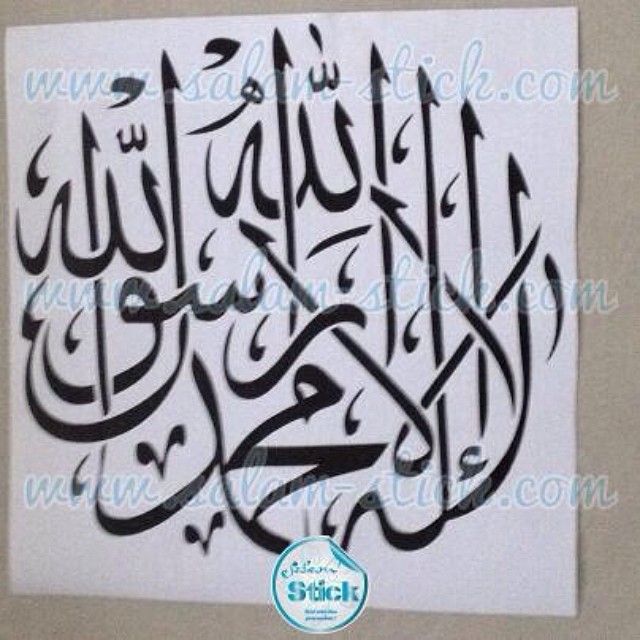 www.salam-stick.com
لا إله إلا الله محمد رسول الله
www.salam-stick.com
www.salam-stick.com
Salam
Stick